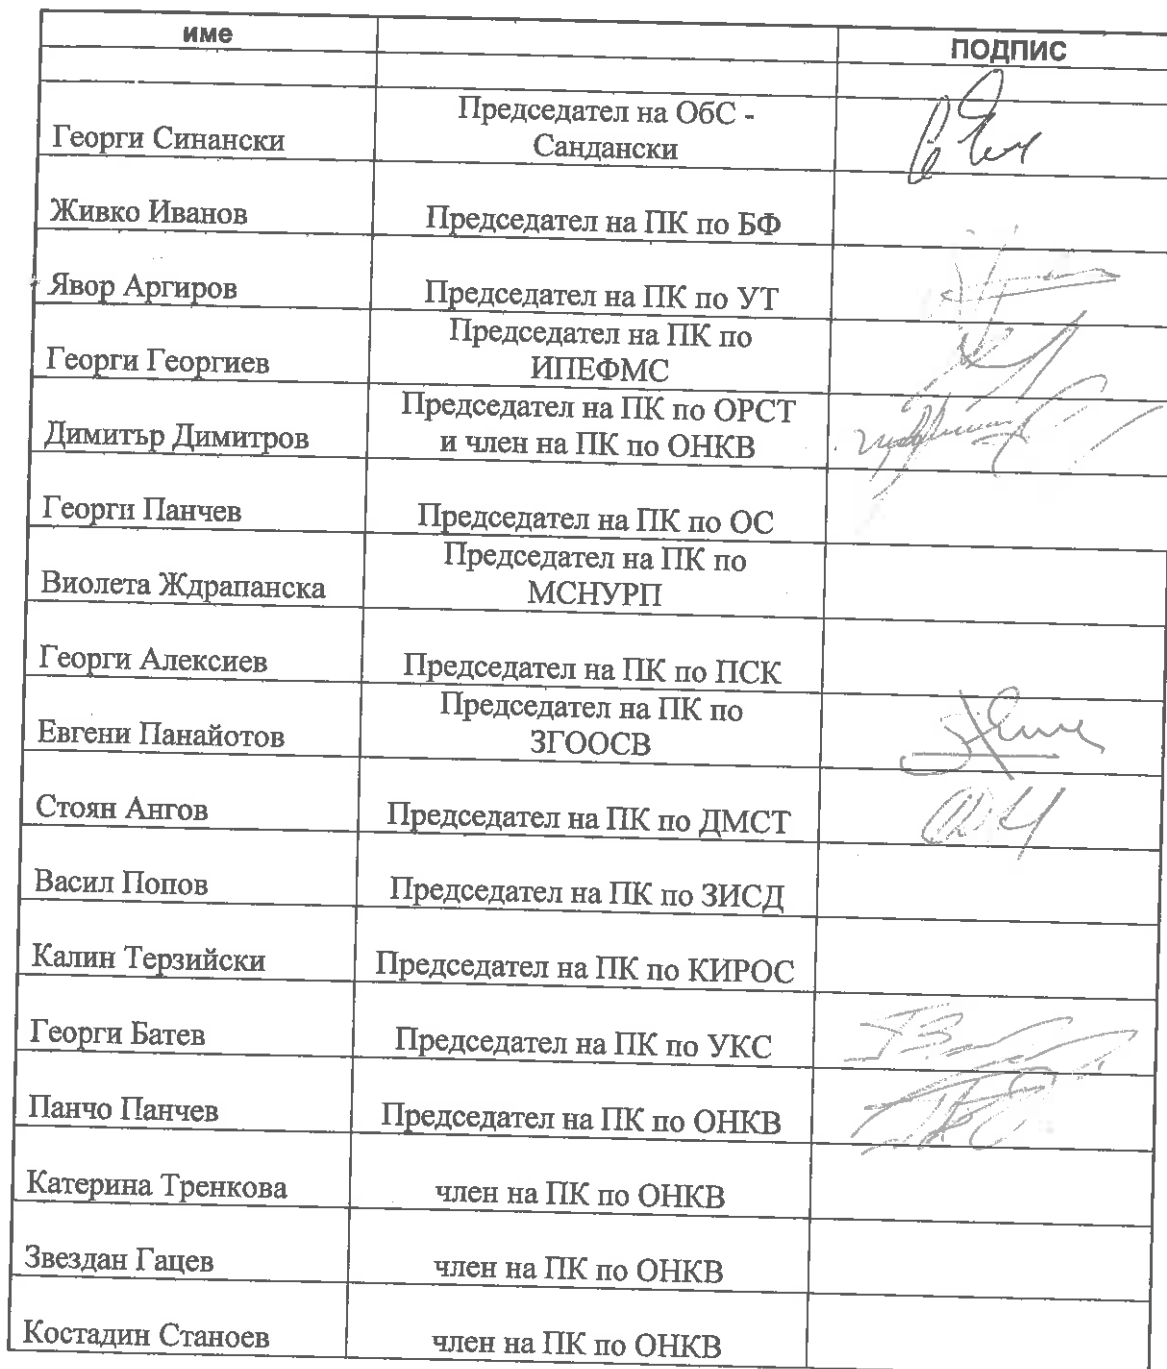 име ПОДПИС
Георги Синански Председател на ОбС -
Сандански
Живко Иванов Председател на ПК по БФ
Явор Аргиров Председател на ПК по УТ
Георги Георгиев Председател на ПК по
ИПЕФМС
Димитър Димитров Председател на ПК по ОРСТ
и член на ПК по ОНКВ
Георги Панчев Председател на ПК по ОС
Виолета Ждрапанска Председател на ПК по
МСНУРП
Георги Алексиев Председател на ПК по ПСК
Евгени Панайотов Председател на ПК по
ЗГООСВ
Стоян Ангов Председател на ПК по ДМСТ
Васил Попов Председател на ПК по ЗИСД
Калин Терзийски Председател на ПК по КИРОС
Георги Батев Председател на ПК по УКС
Панчо Панчев Председател на ПК по ОНКВ
Катерина Тренкова член на ПК по ОНКВ
Звездан Гацев член на ПК по ОНКВ
Костадин Станоев член на ПК по ОНКВ